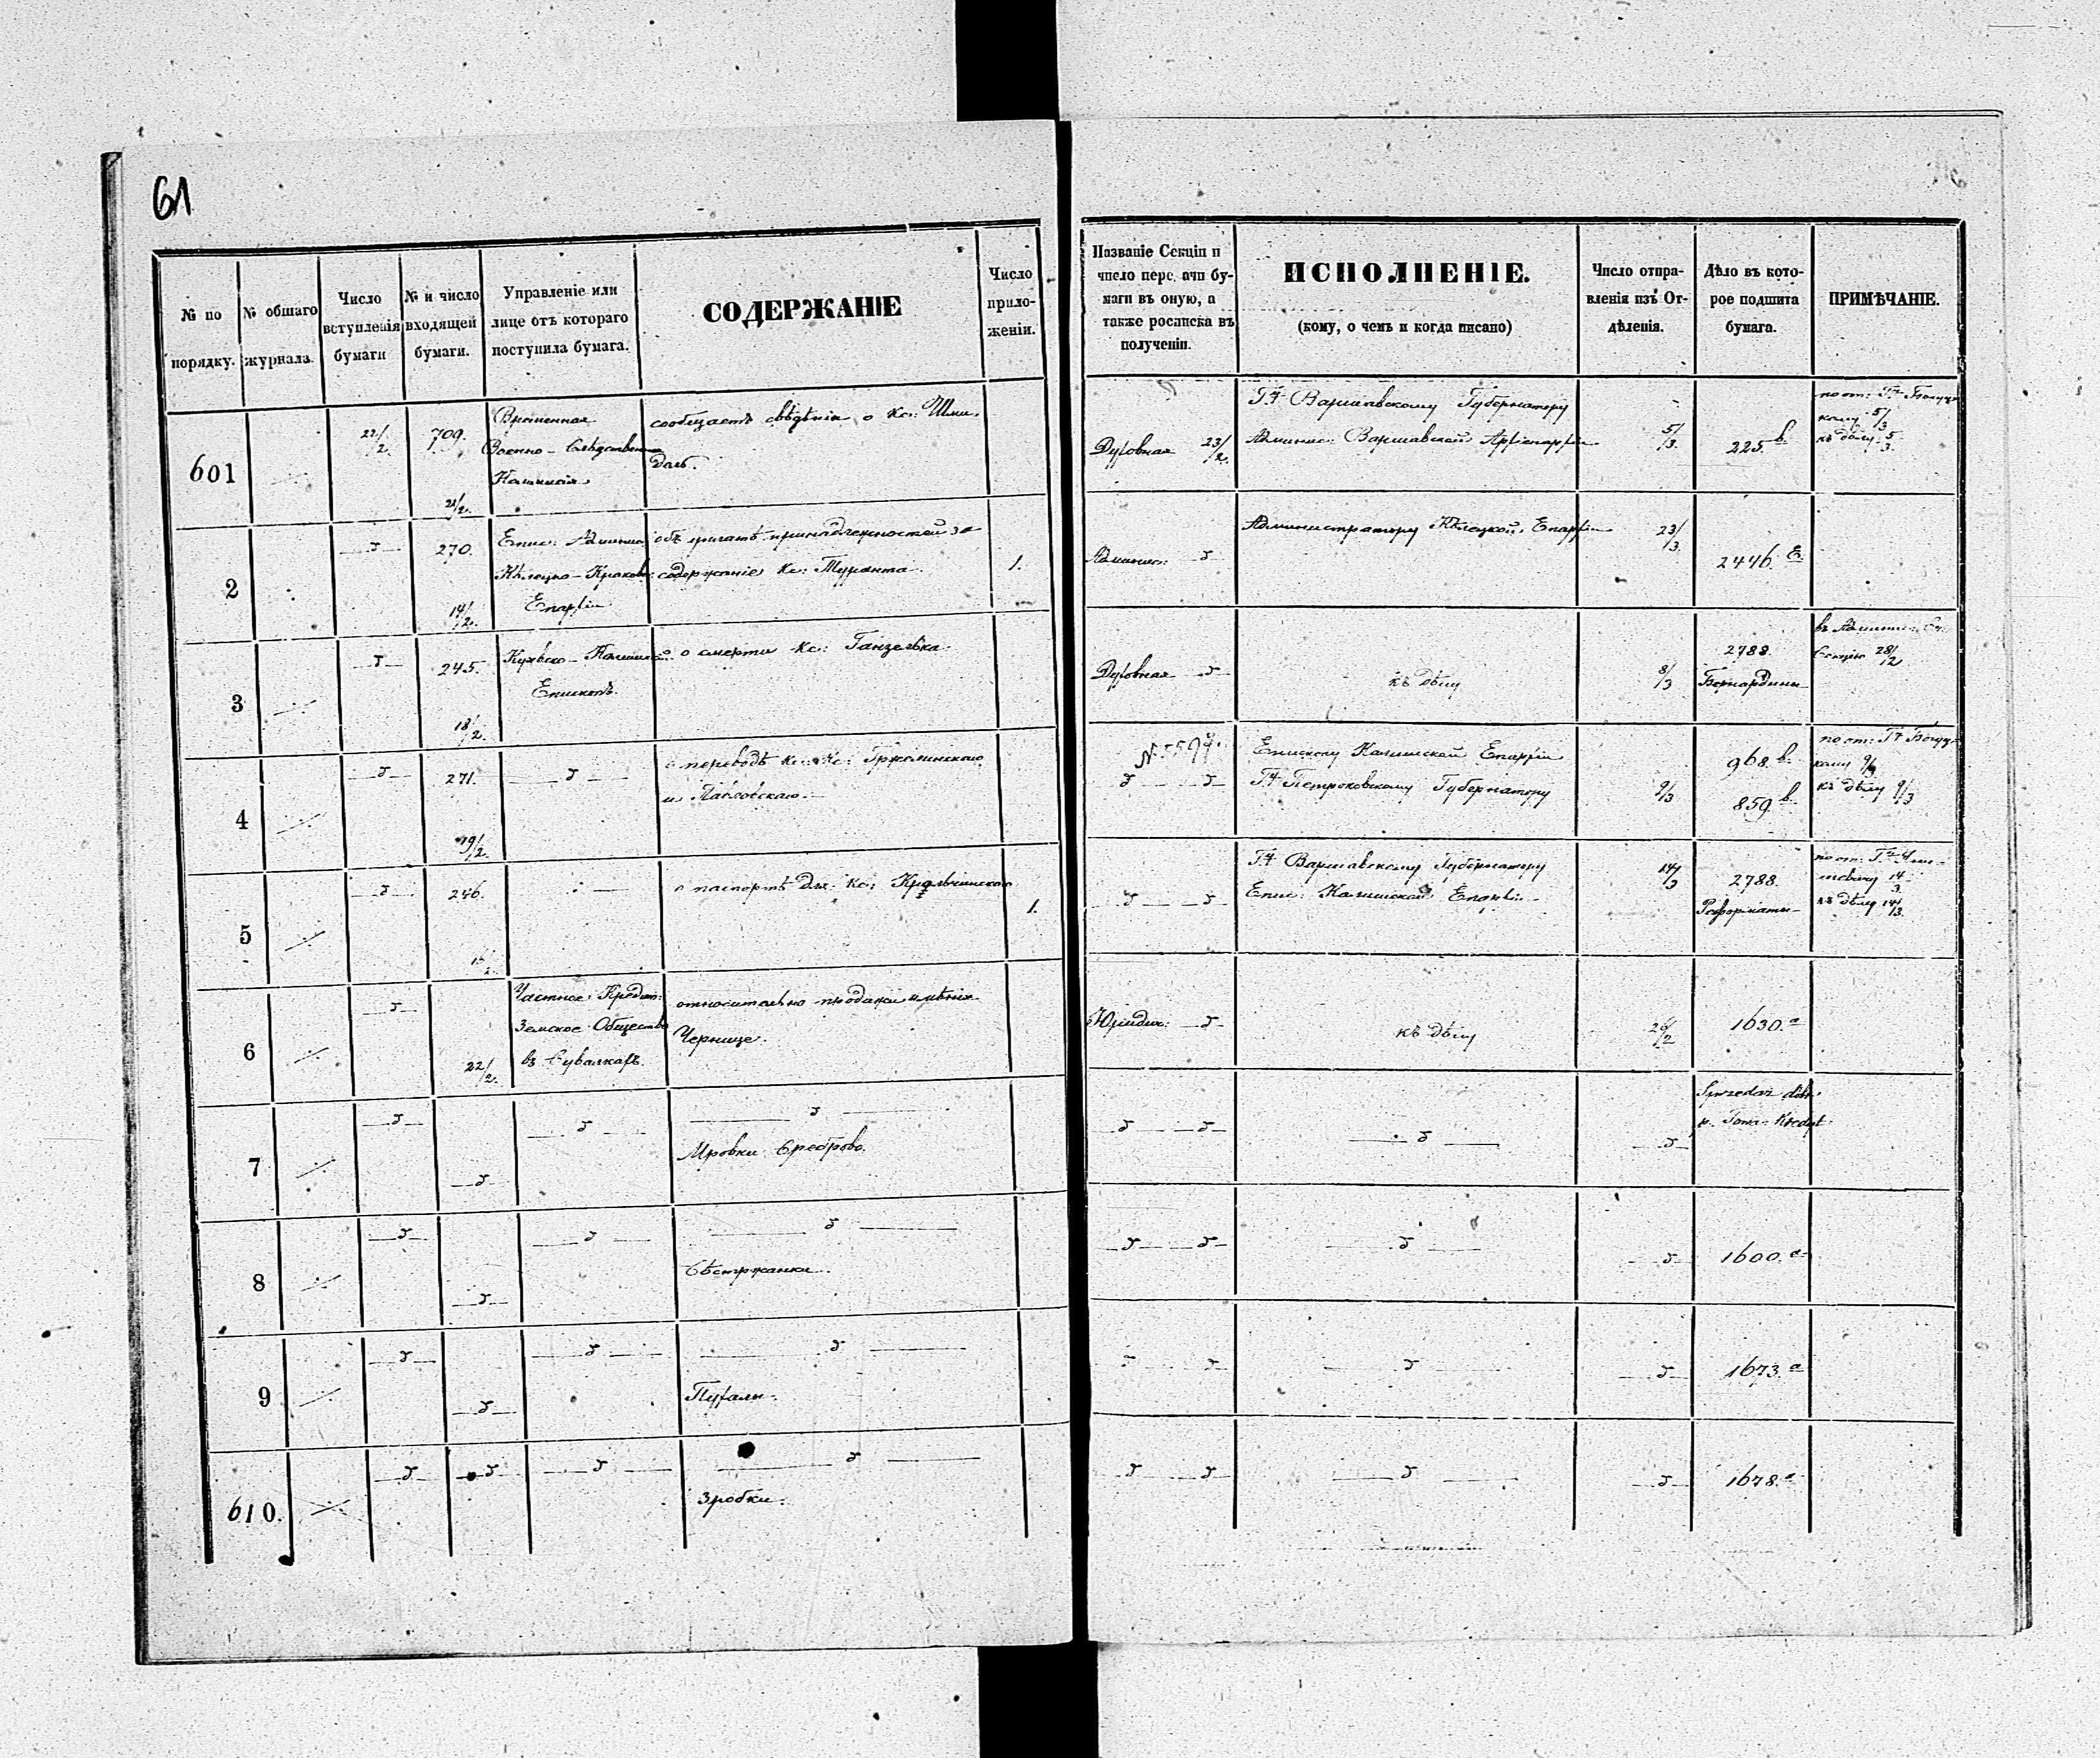 61
№ по порядку.
№ общаго журнала.
Число вступленія бумаги
№ и число входящей бумаги.
Управленіе или лице отъ котораго поступила бумага.
СОДЕРЖАНІЕ
Число приложеніи.
Названіе Секціи и число перс, ачи бумаги въ оную, а также росписка въ полученіи.
ИСПОЛНЕНІЕ.
(кому, о чемъ и когда писано)
Число отправленія изъ Отдѣленія.
Дѣло въ которое подшита бумага.
ПРИМѢЧАНІЕ.
601
22/2.
709.
21/2.
Временная
Военно-Слѣдственная
Комиссія
сообщаетъ свѣдѣнія о Кс: Шми-
даб.
Духовная 23/2.
Гу Варшавскому Губернатору
Админис: Варшавской Архіепархіи
5/3.
225.в
по от: Гу
кому 5/3
къ дѣлу 5/3.
2
270.
14/2.
Епис: Админис:
Кѣлецко-Краков:
Епархіи
объ уплатѣ принадлежностей за
содержаніе Кс: Туранта.
1.
Админис:
Администратору Кѣлецкой Епархіи
23/3.
2446.
3
245.
18/2.
Епископъ.
о смерти Кс: Ганзелька.
Духовная
къ дѣлу
8/3
2788.
Бернардины
Секцію 28/12
4
271.
19/2.
о переводѣ Кс: Кс: Гржолинскаго
и Павловскаго.
Епископу Калишской Епархіи
Гу Петроковскому Губернатору
9/3
968.в.
859.в.
по от: Гу
кому 9/3
къ дѣлу 9/3
5
246.
о паспортѣ для Кс:
1.
Гу Варшавскому Губернатору
Епис: Калишской Епархіи
14/3
2788.
Реформаты
по от:
14/3.
къ дѣлу 14/3.
6
22/2.
Частное Кредит:
Земское Общество
въ Сувалкахъ.
относительно продажи имѣнія
Чернище.
Юридич:
къ дѣлу
26/2
1630.а
7
Мровки Среброво.
Sprzedaż dóbr
p. Tow: Kredyt.
8
Бѣстржанки.
1600.а
9
Пухалы.
1673.а
610.
Зробки.
1678.а